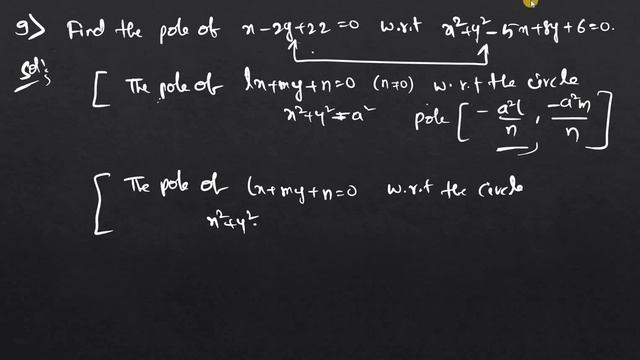 9> Find the pole of x-2y+22=0 w.r.t x²+y²-5x+8y+6=0.
Sol:
[ The pole of lx+my+n=0 (n≠0) w.r.t the circle
x²+y²=a² pole [ -a²l/n , -a²m/n ]
[ The pole of lx+my+n=0 w.r.t the circle
x²+y²